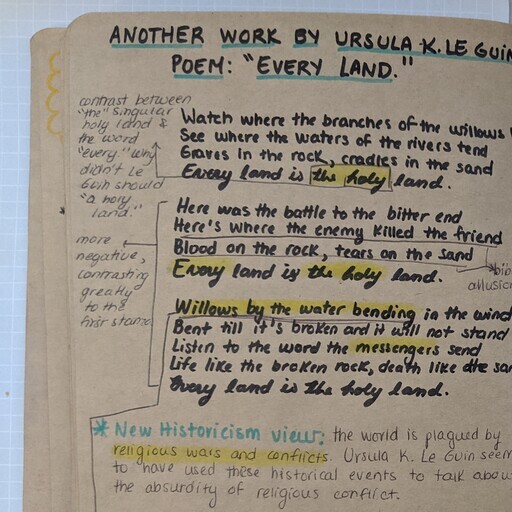 ANOTHER WORK BY URSULA K. LE GUIN
POEM: "EVERY LAND."
contrast between
"the" singular
holy land &
the word
"every." Why
didn't Le
Guin should
"a holy
land."
Watch where the branches of the willows
See where the waters of the rivers tend
Graves in the rock, cradles in the sand
Every land is the holy land.
Here was the battle to the bitter end
Here's where the enemy killed the friend
Blood on the rock, tears on the sand
Every land is the holy land.
more
negative,
contrasting
greatly
to the
first stanza.
allusion
Willows by the water bending in the wind
Bent till it's broken and it will not stand
Listen to the word the messengers send
Life like the broken rock, death like the san
Every land is the holy land.
* New Historicism view: the world is plagued by
religious wars and conflicts. Ursula K. Le Guin seem
to have used these historical events to talk abou
the absurdity of religious conflict.